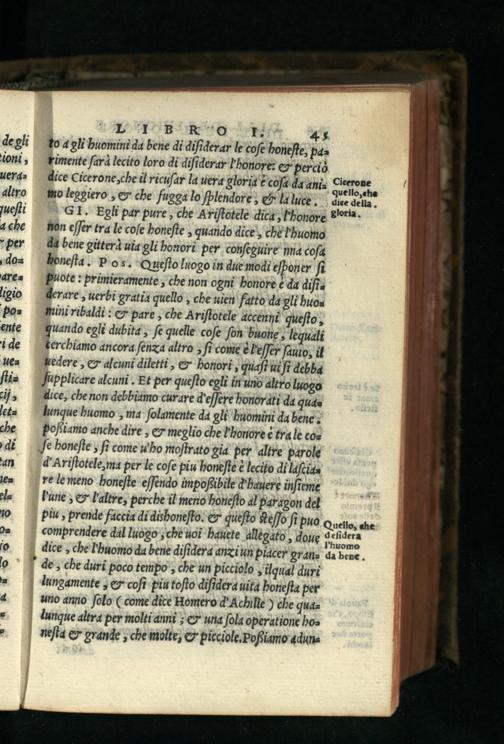 LIBRO I. 45
to a gli huomini da bene di disiderar le cose honeste, pa-
rimente sarà lecito loro di disiderar l'honore: & perciò
dice Cicerone, che il ricusar la uera gloria è cosa da ani-
mo leggiero, & che fugga lo splendore, & la luce.
GI. Egli par pure, che Aristotele dica, l'honore
non esser tra le cose honeste, quando dice, che l'huomo
da bene gitterà uia gli honori per conseguire una cosa
honesta. POS. Questo luogo in due modi esponer si
puote: primieramente, che non ogni honore è da disi-
derare, uerbi gratia quello, che uien fatto da gli huo-
mini ribaldi: & pare, che Aristotele accenni questo,
quando egli dubita, se quelle cose son buone, lequali
cerchiamo ancora senza altro, si come è l'esser sauio, il
uedere, & alcuni diletti, & honori, quasi ui si debba
supplicare alcuni. Et per questo egli in uno altro luogo
dice, che non debbiamo curare d'essere honorati da qua-
lunque huomo, ma solamente da gli huomini da bene.
possiamo anche dire, & meglio che l'honore è tra le co-
se honeste, si come u'ho mostrato gia per altre parole
d'Aristotele, ma per le cose piu honeste è lecito di lascia-
re le meno honeste essendo impossibile d'hauere insieme
l'une, & l'altre, perche il meno honesto al paragon del
piu, prende faccia di dishonesto. & questo stesso si puo
comprendere dal luogo, che uoi hauete allegato, doue
dice, che l'huomo da bene disidera anzi un piacer gran-
de, che duri poco tempo, che un picciolo, ilqual duri
lungamente, & cosi piu tosto disidera uita honesta per
uno anno solo (come dice Homero d'Achille) che qua-
lunque altra per molti anni; & una sola operatione ho-
nesta & grande, che molte, & picciole. Possiamo adun-
Cicerone
quello, che
dice della
gloria.
Quello, che
desidera
l'huomo
da bene.